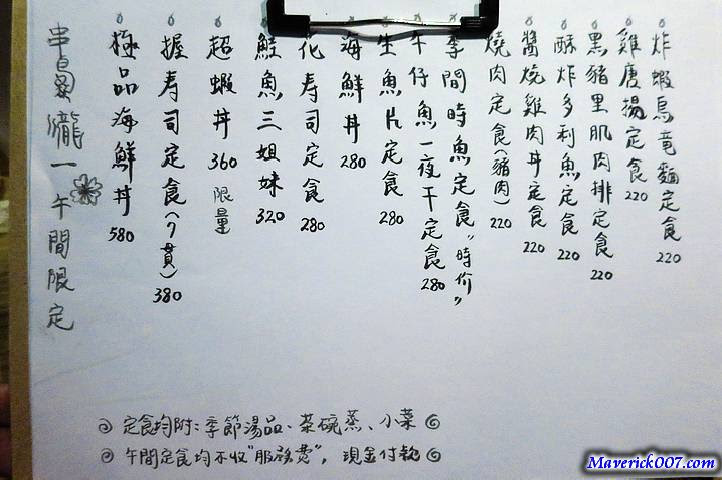 炸蝦烏竜麵定食 220
雞唐揚定食 220
黑豬里肌肉排定食 220
酥炸多利魚定食 220
醬燒雞肉丼定食 220
燒肉定食(豬肉) 220
季間時魚定食"時价"
午仔魚一夜干定食 280
生魚片定食 280
海鮮丼 280
化寿司定食 280
鮭魚三姐妹 320
超蝦丼 360 限量
握寿司定食(7貫) 380
極品海鮮丼 580
串鳥瀧一 午間限定
定食均附:季節湯品、茶碗蒸、小菜
午間定食均不收"服務費",現金付款
Maverick007.com